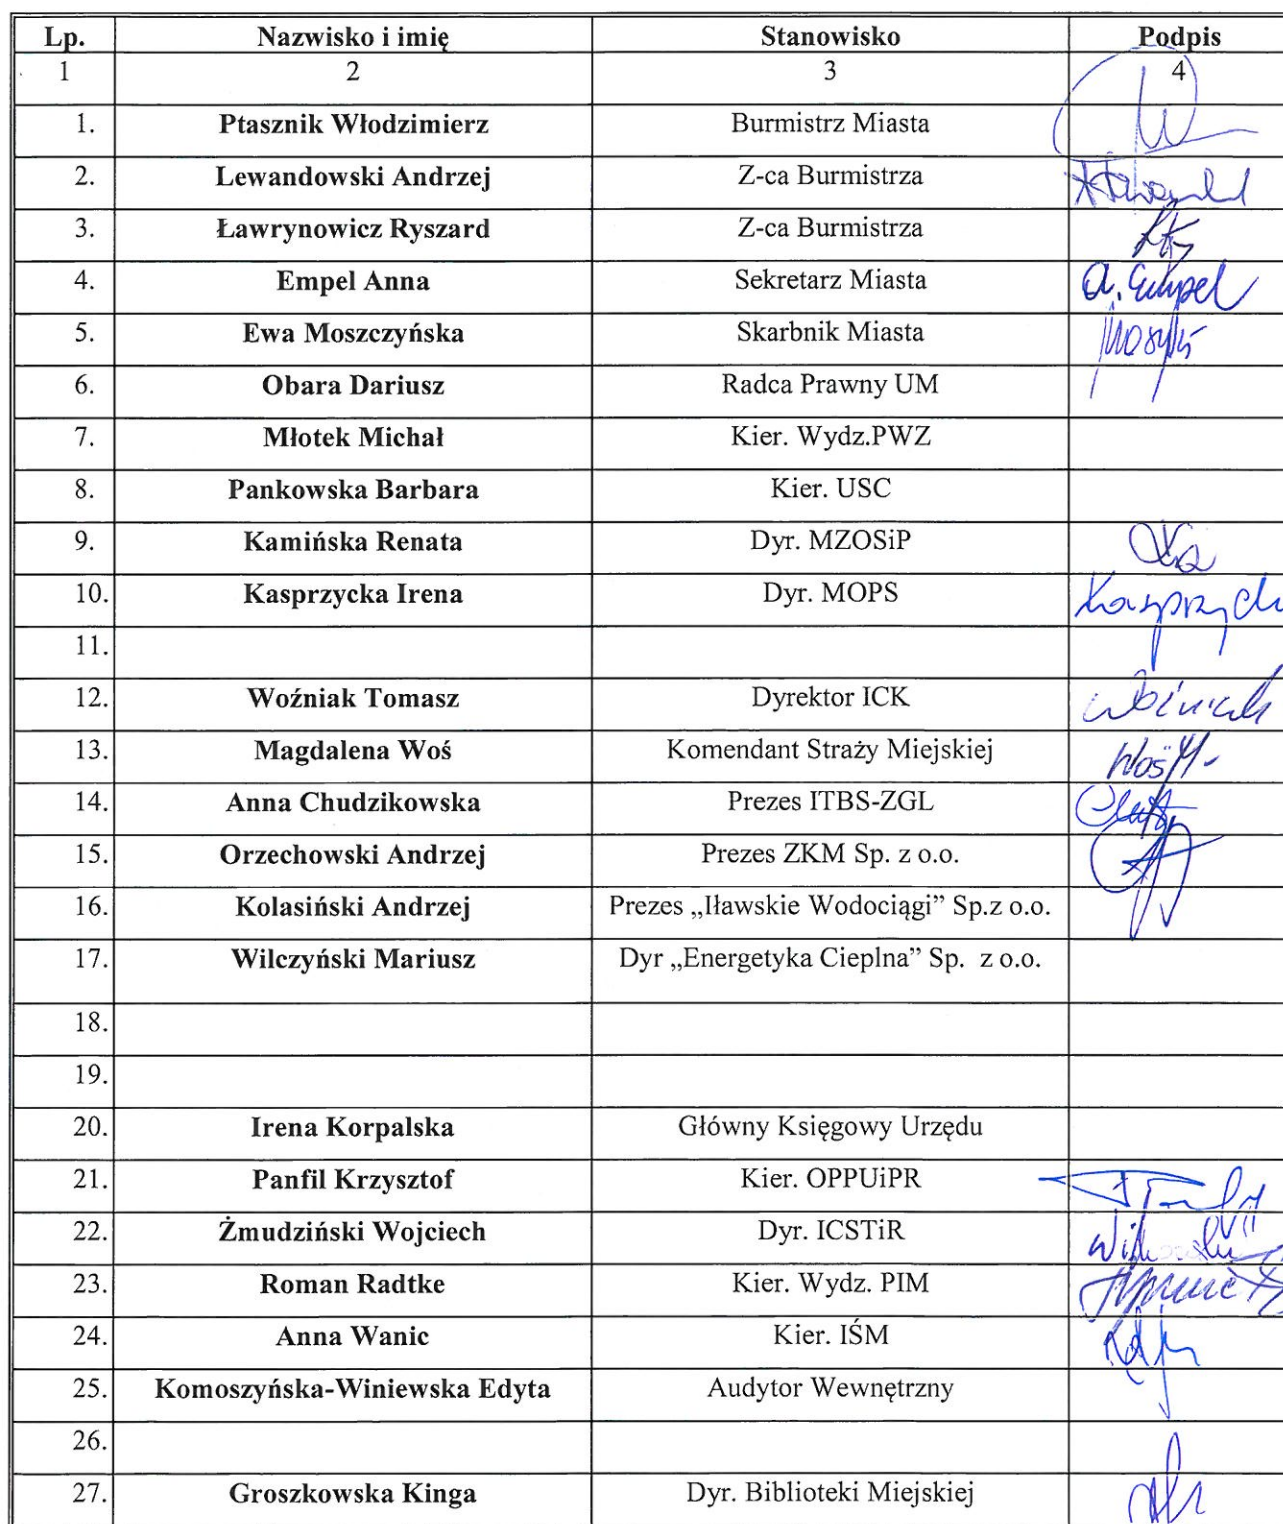 Lp. Nazwisko i imię Stanowisko Podpis
1 2 3 4
1. Ptasznik Włodzimierz Burmistrz Miasta
2. Lewandowski Andrzej Z-ca Burmistrza
3. Ławrynowicz Ryszard Z-ca Burmistrza
4. Empel Anna Sekretarz Miasta A. Empel
5. Ewa Moszczyńska Skarbnik Miasta
6. Obara Dariusz Radca Prawny UM
7. Młotek Michał Kier. Wydz.PWZ
8. Pankowska Barbara Kier. USC
9. Kamińska Renata Dyr. MZOSiP
10. Kasprzycka Irena Dyr. MOPS
11.
12. Woźniak Tomasz Dyrektor ICK Woźniak
13. Magdalena Woś Komendant Straży Miejskiej Woś M.
14. Anna Chudzikowska Prezes ITBS-ZGL
15. Orzechowski Andrzej Prezes ZKM Sp. z o.o.
16. Kolasiński Andrzej Prezes „Iławskie Wodociągi” Sp.z o.o.
17. Wilczyński Mariusz Dyr „Energetyka Cieplna” Sp. z o.o.
18.
19.
20. Irena Korpalska Główny Księgowy Urzędu
21. Panfil Krzysztof Kier. OPPUiPR
22. Żmudziński Wojciech Dyr. ICSTiR
23. Roman Radtke Kier. Wydz. PIM
24. Anna Wanic Kier. IŚM
25. Komoszyńska-Winiewska Edyta Audytor Wewnętrzny
26.
27. Groszkowska Kinga Dyr. Biblioteki Miejskiej